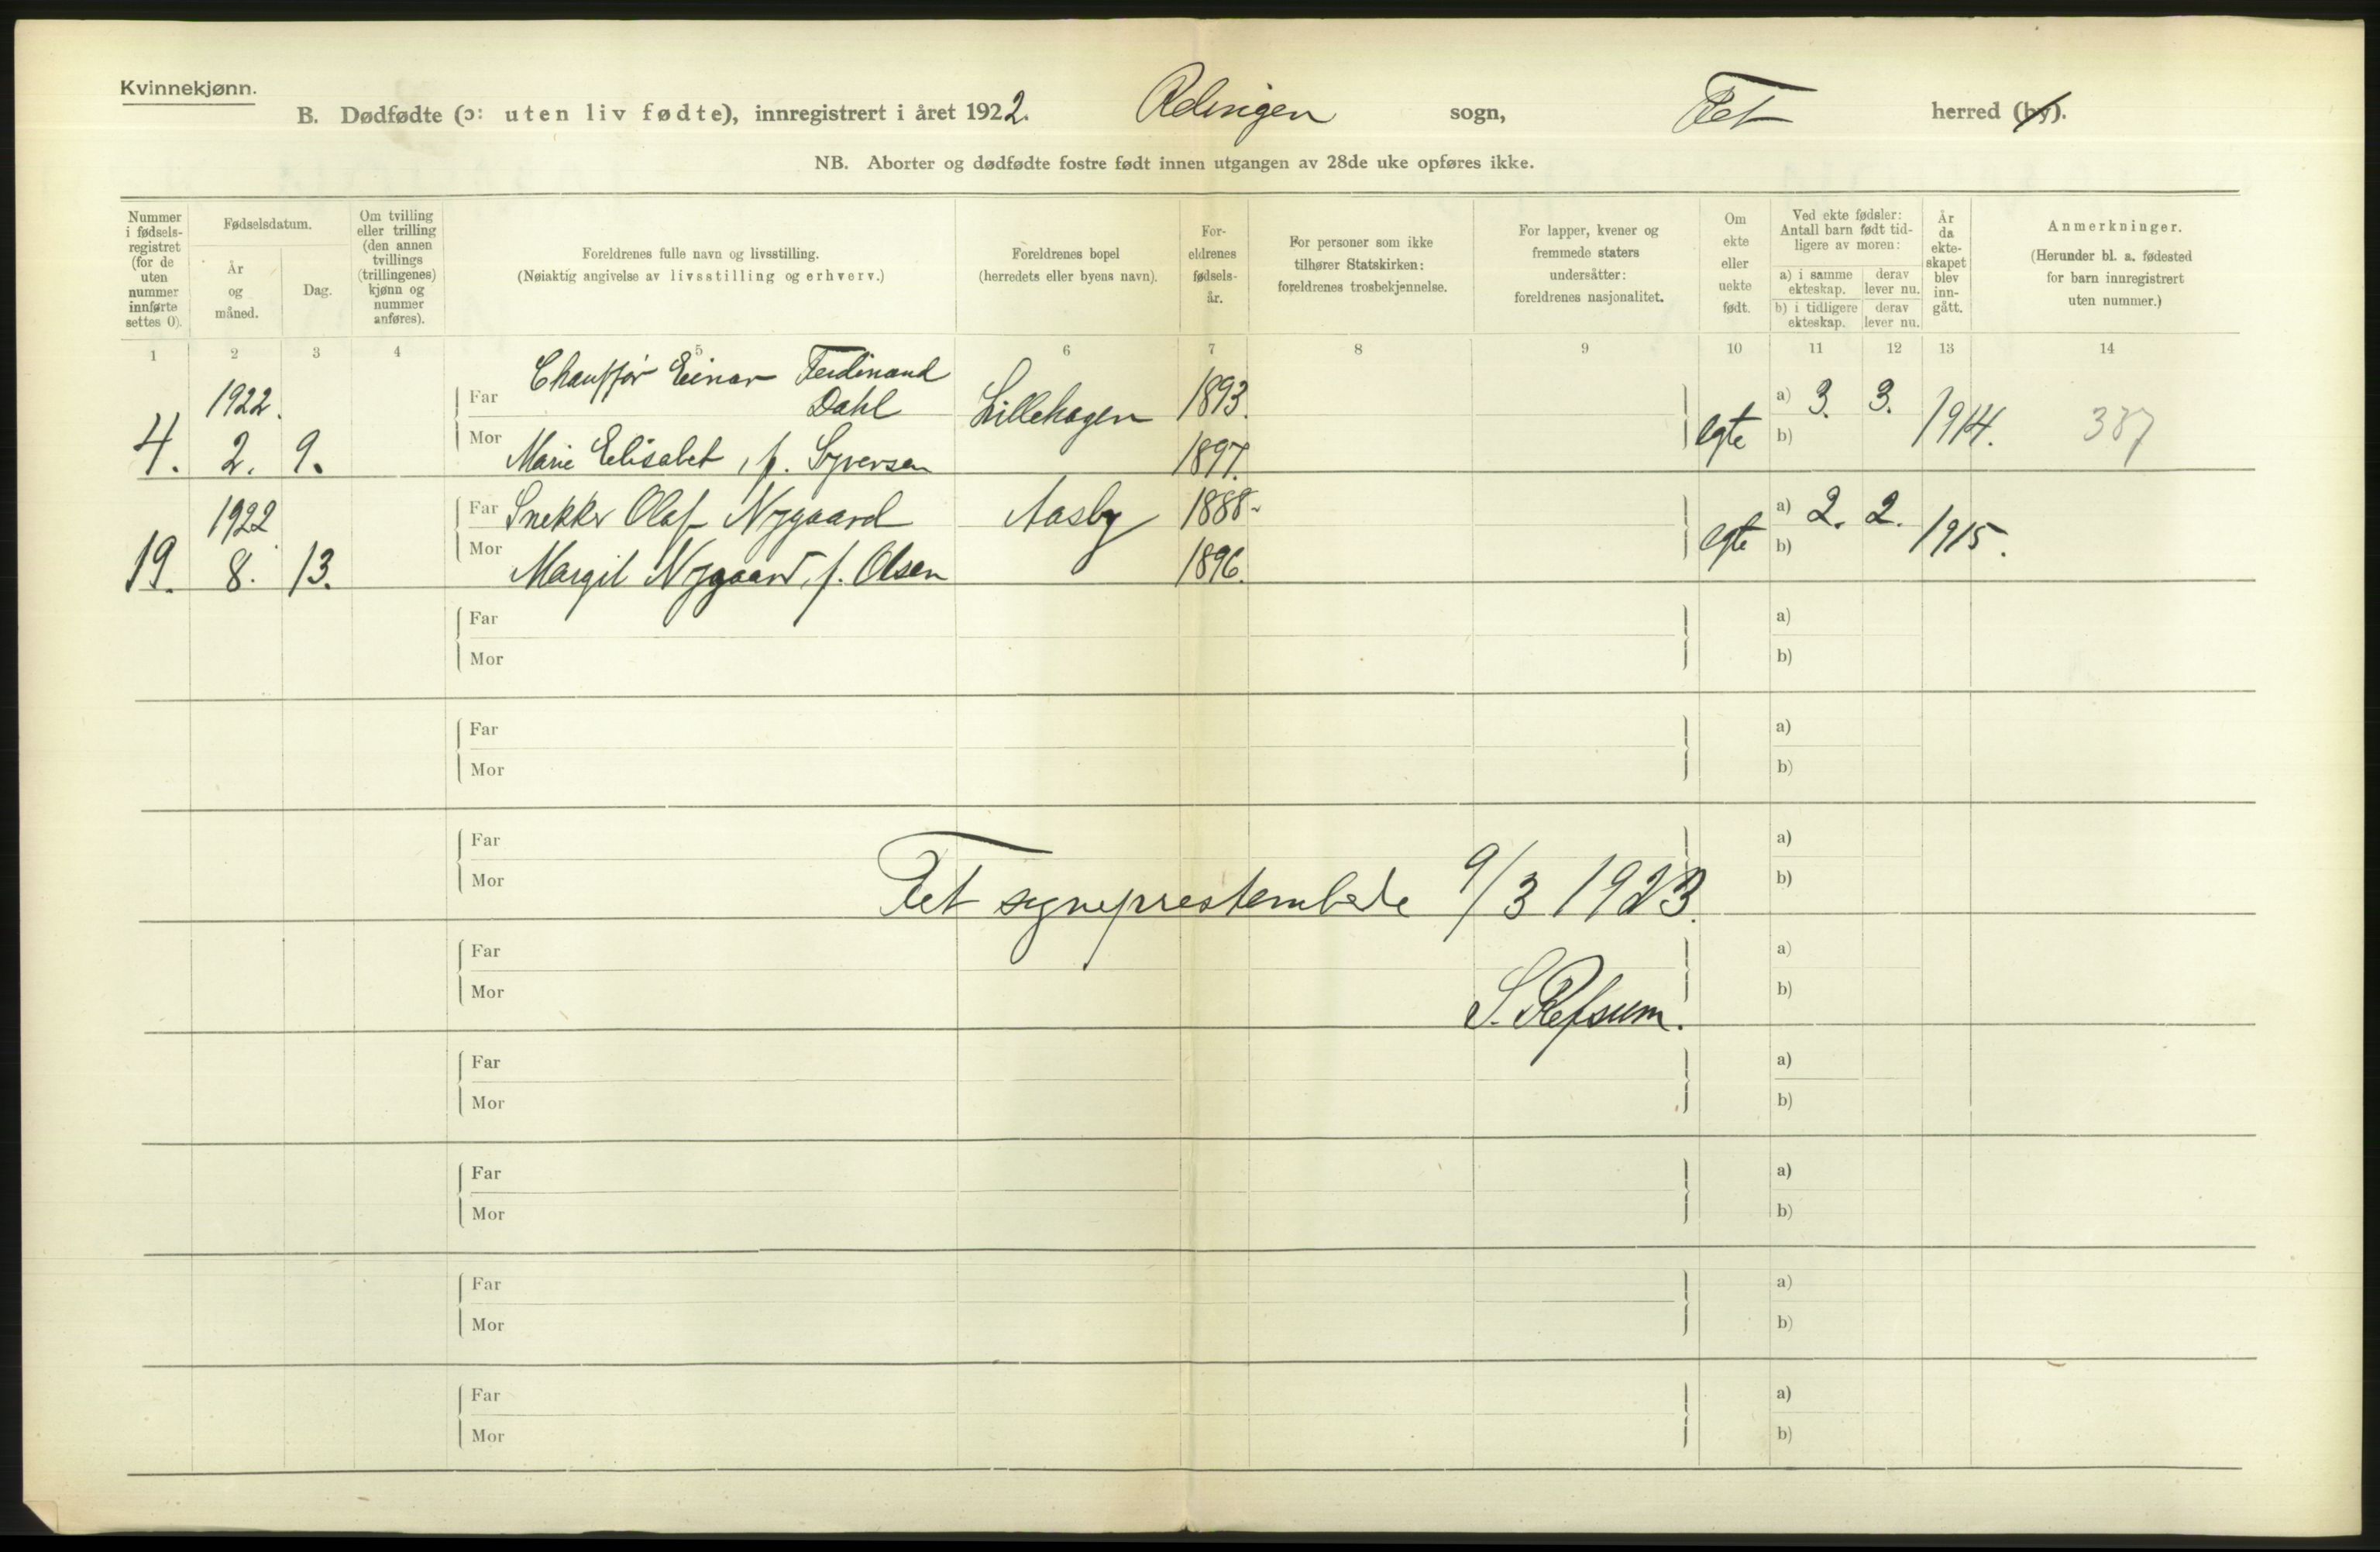 Kvinnekjønn.
B. Dødfødte (ɔ: uten liv fødte), innregistrert i året 1922. Rælingen sogn, Fet herred (by).
NB. Aborter og dødfødte fostre født innen utgangen av 28de uke opføres ikke.
Nummer i fødsels-registret (for de uten nummer innførte settes 0).
Fødselsdatum.
År og måned.
Dag.
Om tvilling eller trilling (den annen tvillings (trillingenes) kjønn og nummer anføres).
Foreldrenes fulle navn og livsstilling.
(Nøiaktig angivelse av livsstilling og erhverv.)
Foreldrenes bopel
(herredets eller byens navn).
For-eldrenes fødsels-år.
For personer som ikke tilhører Statskirken: foreldrenes trosbekjennelse.
For lapper, kvener og fremmede staters undersåtter: foreldrenes nasjonalitet.
Om ekte eller uekte født.
Ved ekte fødsler: Antall barn født tid-ligere av moren:
a) i samme ekteskap.
derav lever nu.
b) i tidligere ekteskap.
derav lever nu.
År da ekte-skapet blev inn-gått.
Anmerkninger.
(Herunder bl. a. fødested for barn innregistrert uten nummer.)
1 2 3 4 5 6 7 8 9 10 11 12 13 14
4. 1922. 2. 9.
Far Chauffør Einar Ferdinand Dahl Lillehagen 1893. egte a) 3. 3. 1914. 387
Mor Marie Elisabet, f. Syversen 1897. b)
19. 1922 8. 13.
Far Snekker Olaf Nygaard Aasby 1888. egte a) 2. 2. 1915.
Mor Margit Nygaard, f. Olsen 1896. b)
Far a)
Mor b)
Far a)
Mor b)
Far a)
Mor b)
Fet sogneprestembede 9/3 1923.
Far a)
Mor b)
S. Refsum.
Far a)
Mor b)
Far a)
Mor b)
Far a)
Mor b)
Far a)
Mor b)